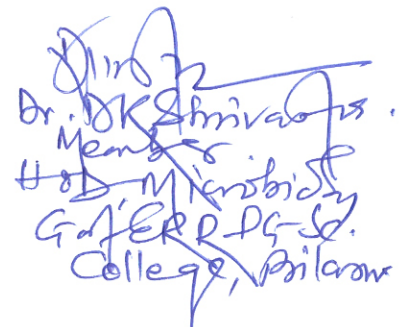 Dr. DK Shrivastva.
Member
HOD, Microbiology
Govt. E R R PG Sc.
College, Bilaspur